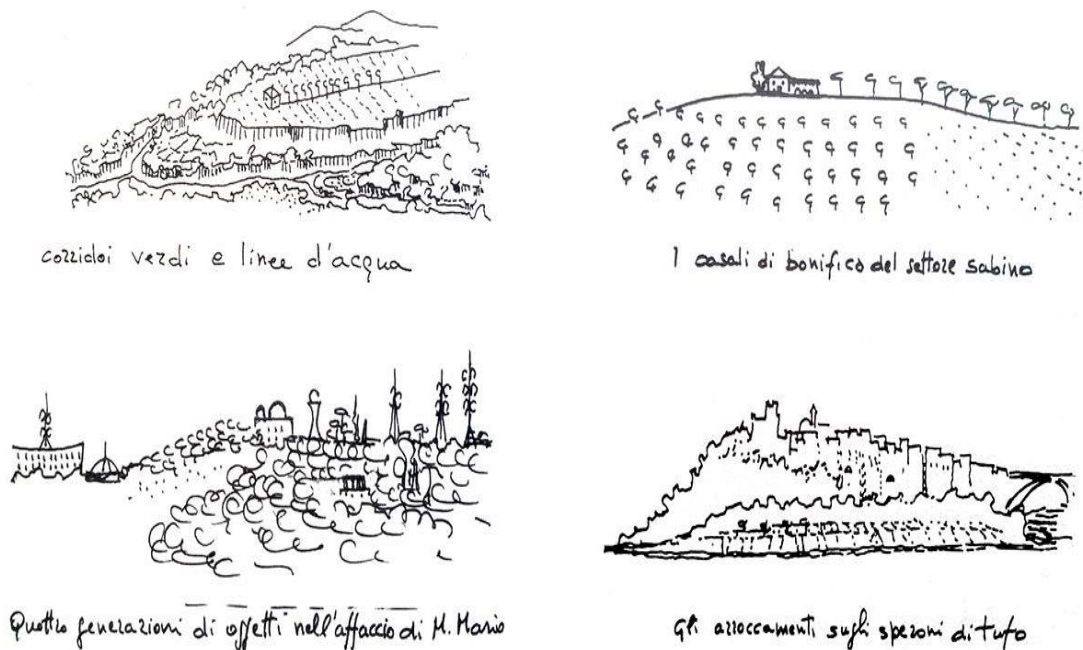 corridoi verdi e linee d'acqua
I casali di bonifica del settore sabino
Quattro generazioni di oggetti nell'affaccio di M. Mario
Gli arroccamenti sugli speroni di tufo